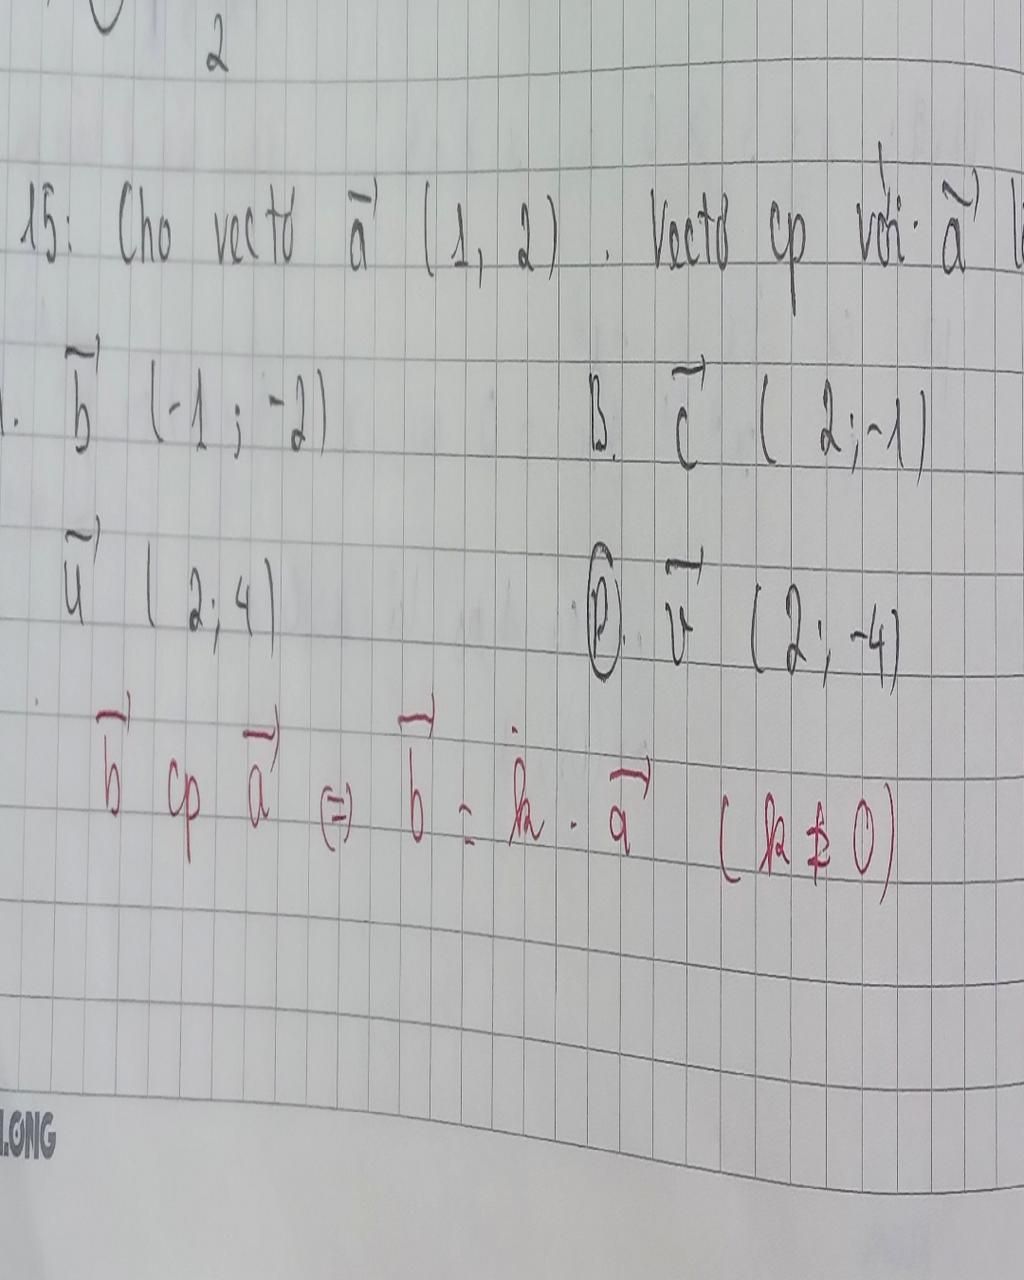 2
15: Cho vectơ a⃗ (1, 2). Vectơ cp với a⃗
b⃗ (-1 ; -2) B. c⃗ (2; -1)
u⃗ (2; 4) D. v⃗ (2; -4)
b⃗ cp a⃗ (=) b⃗ = k . a⃗ (k ≠ 0)
LONG